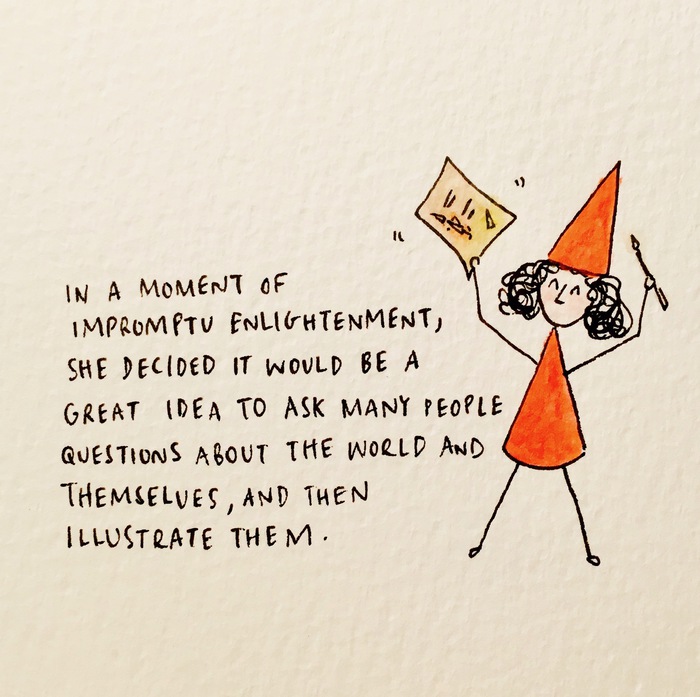 IN A MOMENT OF
IMPROMPTU ENLIGHTENMENT,
SHE DECIDED IT WOULD BE A
GREAT IDEA TO ASK MANY PEOPLE
QUESTIONS ABOUT THE WORLD AND
THEMSELVES, AND THEN
ILLUSTRATE THEM.